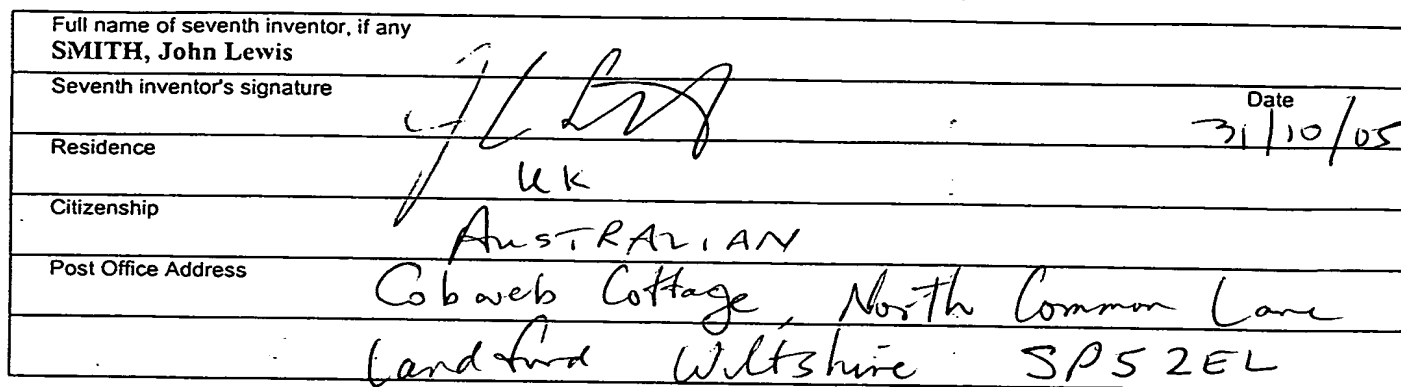 Full name of seventh inventor, if any
SMITH, John Lewis
Seventh inventor's signature
Date
31/10/05
Residence
UK
Citizenship
AUSTRALIAN
Post Office Address
Cobweb Cottage, North Common Lane
Landford Wiltshire SP5 2EL